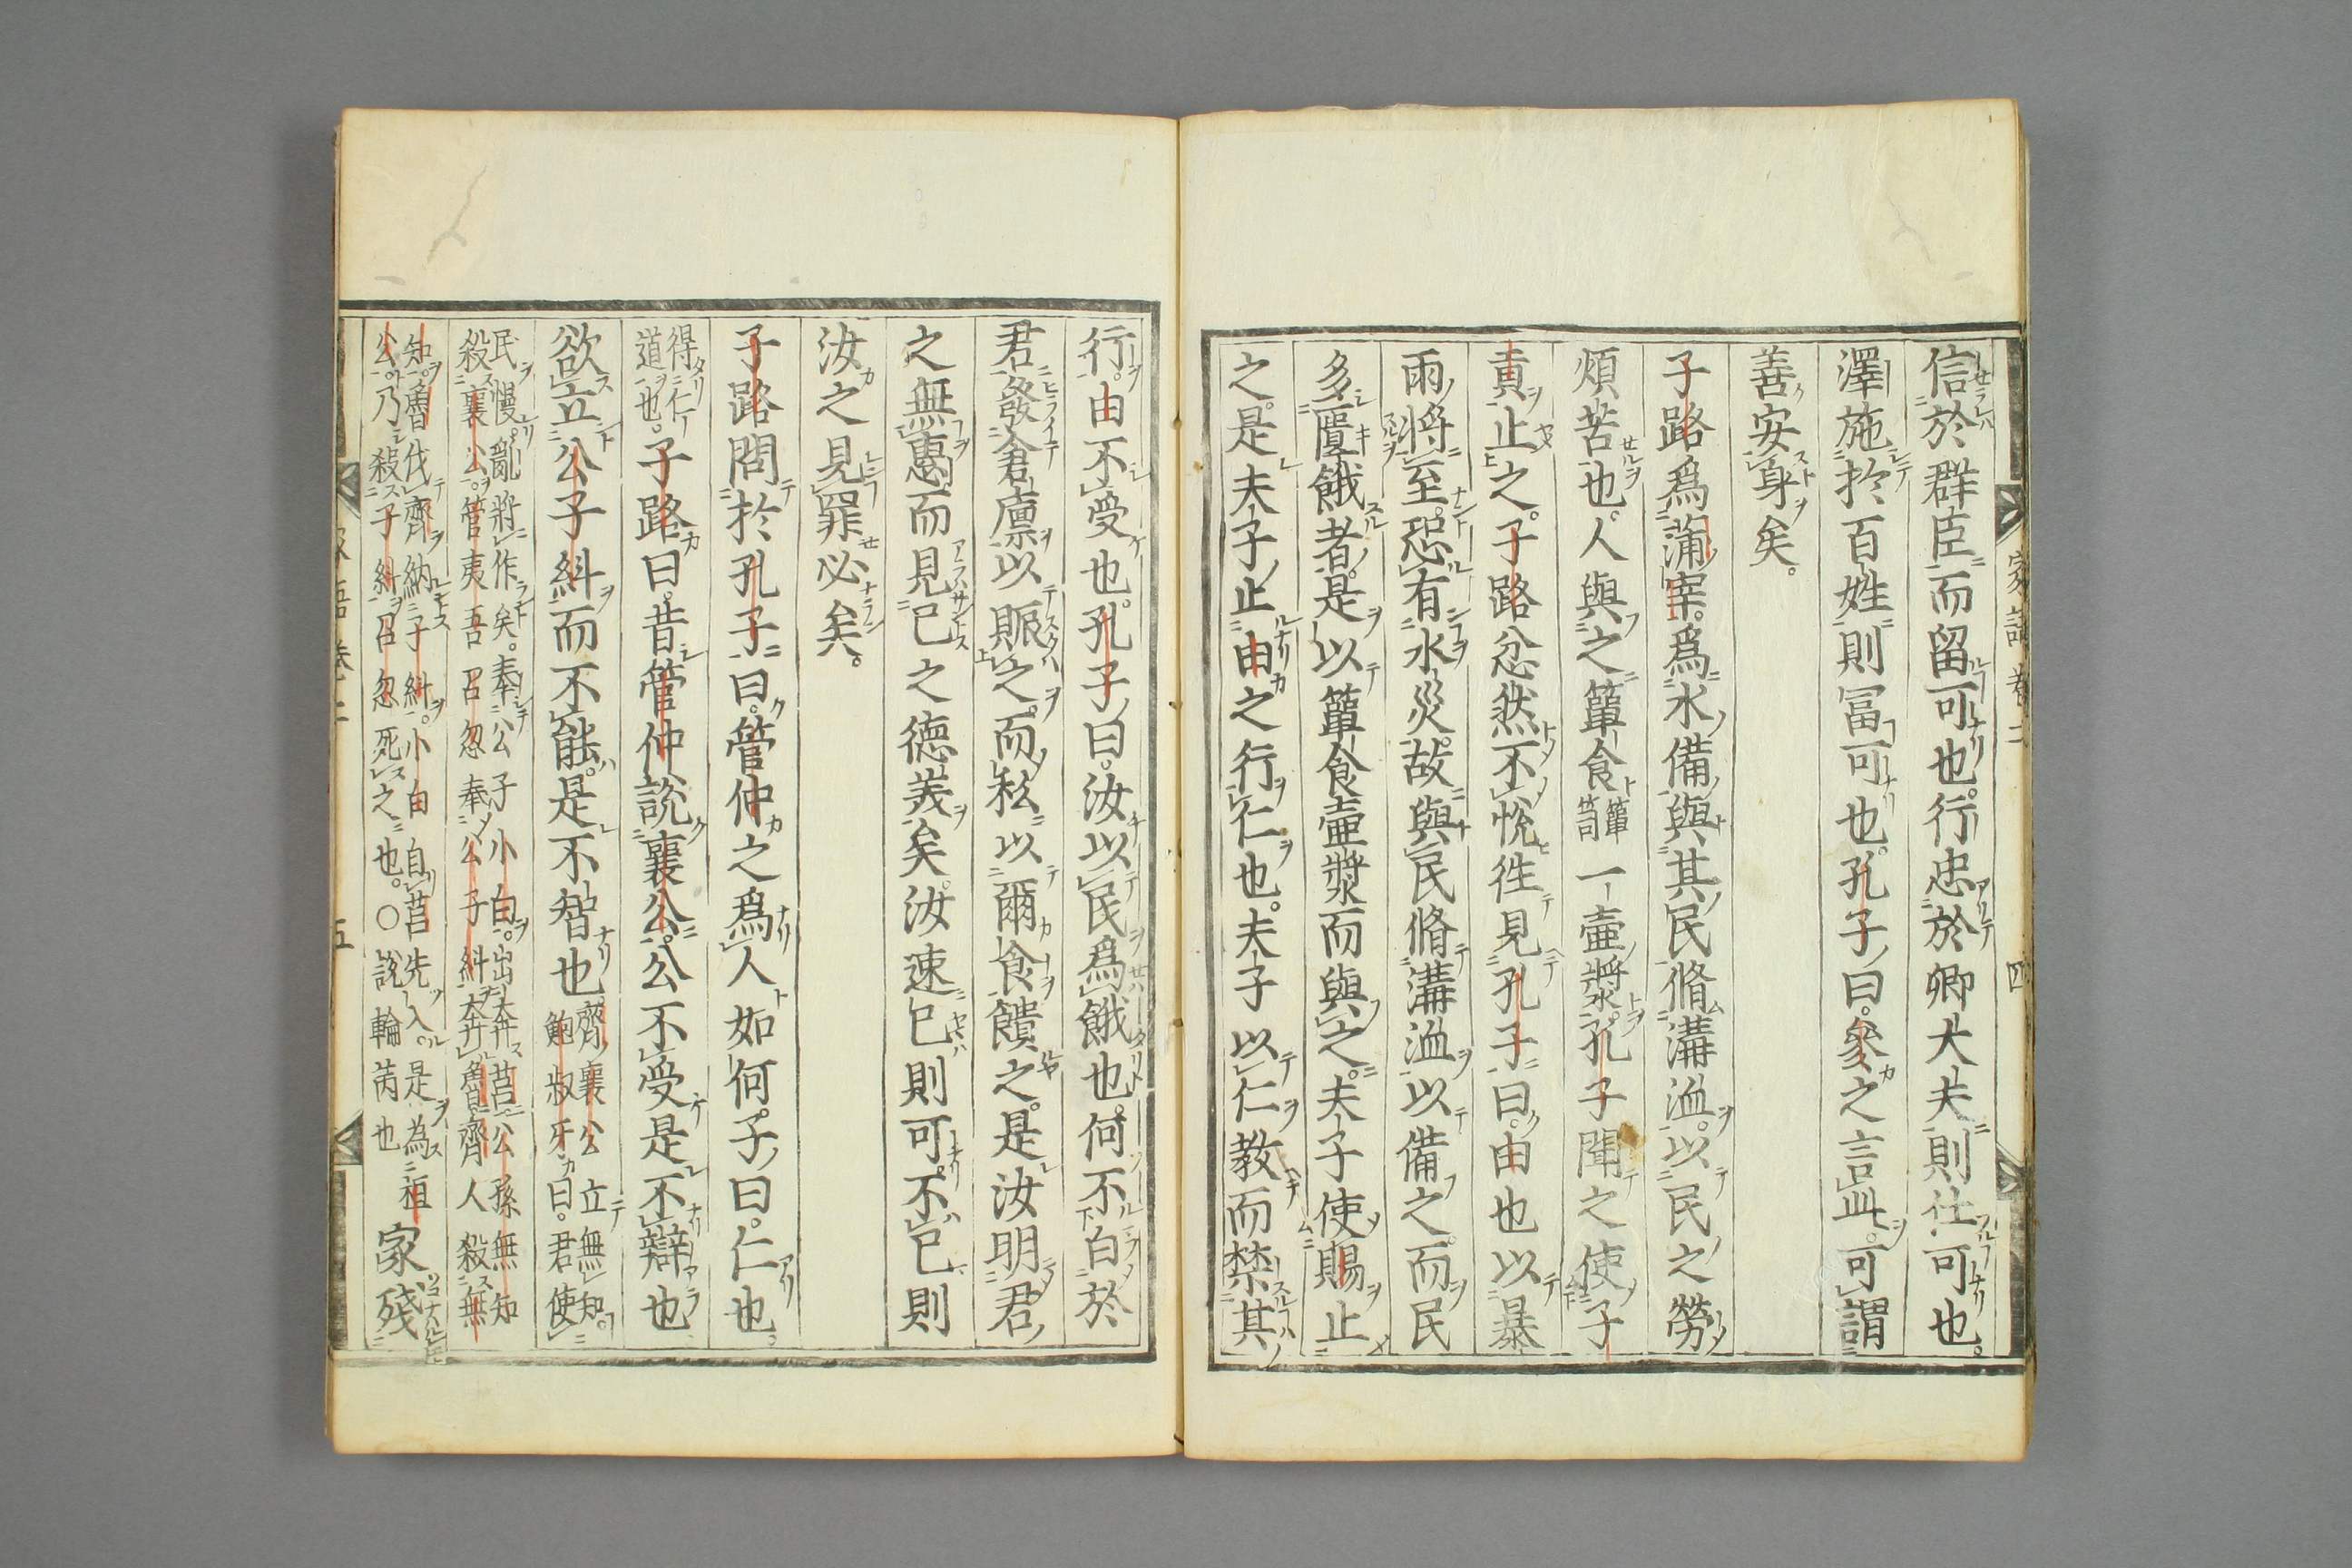 信於群臣而留可也行忠於卿大夫則仕可也。
澤施於百姓則冨可也。孔子曰。參之言此。可謂
善安身矣。
子路爲蒲宰。爲水備與其民脩溝洫。以民之勞
煩苦也。人與之簞食簞笥一壷漿。孔子聞之使子
貢止之。子路忿然不悅徃見孔子曰。由也以暴
雨將至。恐有水災。故與民脩溝洫以備之。而民
多匱餓者。是以簞食壷漿而與之。夫子使賜止
之。是夫子止由之行仁也。夫子以仁教而禁其
家語卷二
四
行。由不受也。孔子曰。汝以民爲餓也。何不白於
君。發倉廩以賑之。而私以爾食饋之。是汝明君
之無惠。而見己之德義矣。汝速已則可。不已則
汝之見罪必矣。
子路問於孔子曰。管仲之爲人如何。子曰。仁也。
得仁
道也。子路曰。昔管仲說襄公。公不受。是不辯也
欲立公子糾而不能。是不智也齊襄公立無知。
鮑叔牙曰。君使
民慢。亂將作矣。奉公子小白。出奔莒。公孫無知
殺襄公。管夷吾召忽奉公子糾奔魯。齊人殺無
知。魯伐齊納子糾。小白自莒先入。是為祖
公。乃殺子糾召忽死之也。〇說輪芮也家殘
五